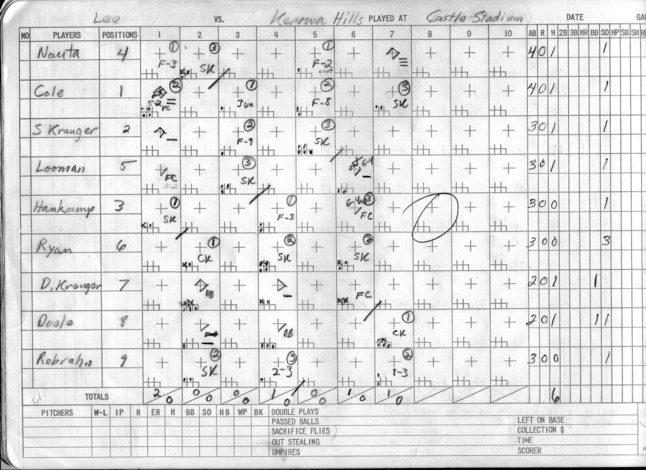 Lee VS. Kenowa Hills PLAYED AT Castle Stadium DATE
NO PLAYERS POSITIONS 1 2 3 4 5 6 7 8 9 10 AB R H 2B 3B HR BB SO HP SB SH
Nauta 4 F-3 SK F-2 4 0 1 1
Cole 1 3un F-8 SK 4 0 1 1
S Krauger 2 F-9 SK 3 0 1 1
Looman 5 FC SK 3 0 1 1
Hankamp 3 SK F-3 FC 3 0 0 1
Ryan 6 CK SK SK 3 0 0 3
D. Krauger 7 BB FC 2 0 1 1
8 BB CK 2 0 1 1 1
Robrahn 9 SK 2-3 1-3 3 0 0 1
TOTALS 2/0 0/0 0/0 1/0 0/0 1/0 1/0 6
PITCHERS W-L IP R ER H BB SO HB WP BK DOUBLE PLAYS
PASSED BALLS LEFT ON BASE
SACRIFICE FLIES COLLECTION $
OUT STEALING TIME
UMPIRES SCORER